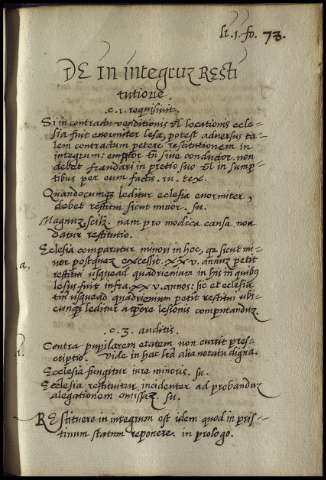 li. 1. fo. 73.
DE In integruz RESti
tutione
.c. 1. requisivit.
Si in contractu venditionis vl locationis ecle-
sia fuit enormiter lesa, potest adversus ta-
lem contractum petere restitutionem in
integrum: emptor tn sive conductor non
debet fraudari in pretio suo vl in sump-
tibus per eum factis. in. tex.
Quandocunqz leditur eclesia enormiter,
debet restitui sicut minor. su.
nam pro modica causa non
datur restitutio.
Eclesia comparatur minori in hoc, qa sicut mi-
nor postquaz excessit .xxv. annuz petit
restitui usquead quadrienniuz in his in quibz
lesus fuit infra .xxv. annos: sic et eclesia
tn usquead quadrienium petit restitui ubi-
cunqz leditur a tpore lesionis computanduz.
a.
.c. 3. auditis.
Contra pupilarem etatem non currit pres-
criptio. vide in hac alia notatu digna.
Eclesia fungitur iure minoris. su.
Eclesia restituitur incidenter ad probanduz
alegationem omissaz. su.
REstituere in integrum est idem quod in pris-
tinum statum reponere. in prologo.